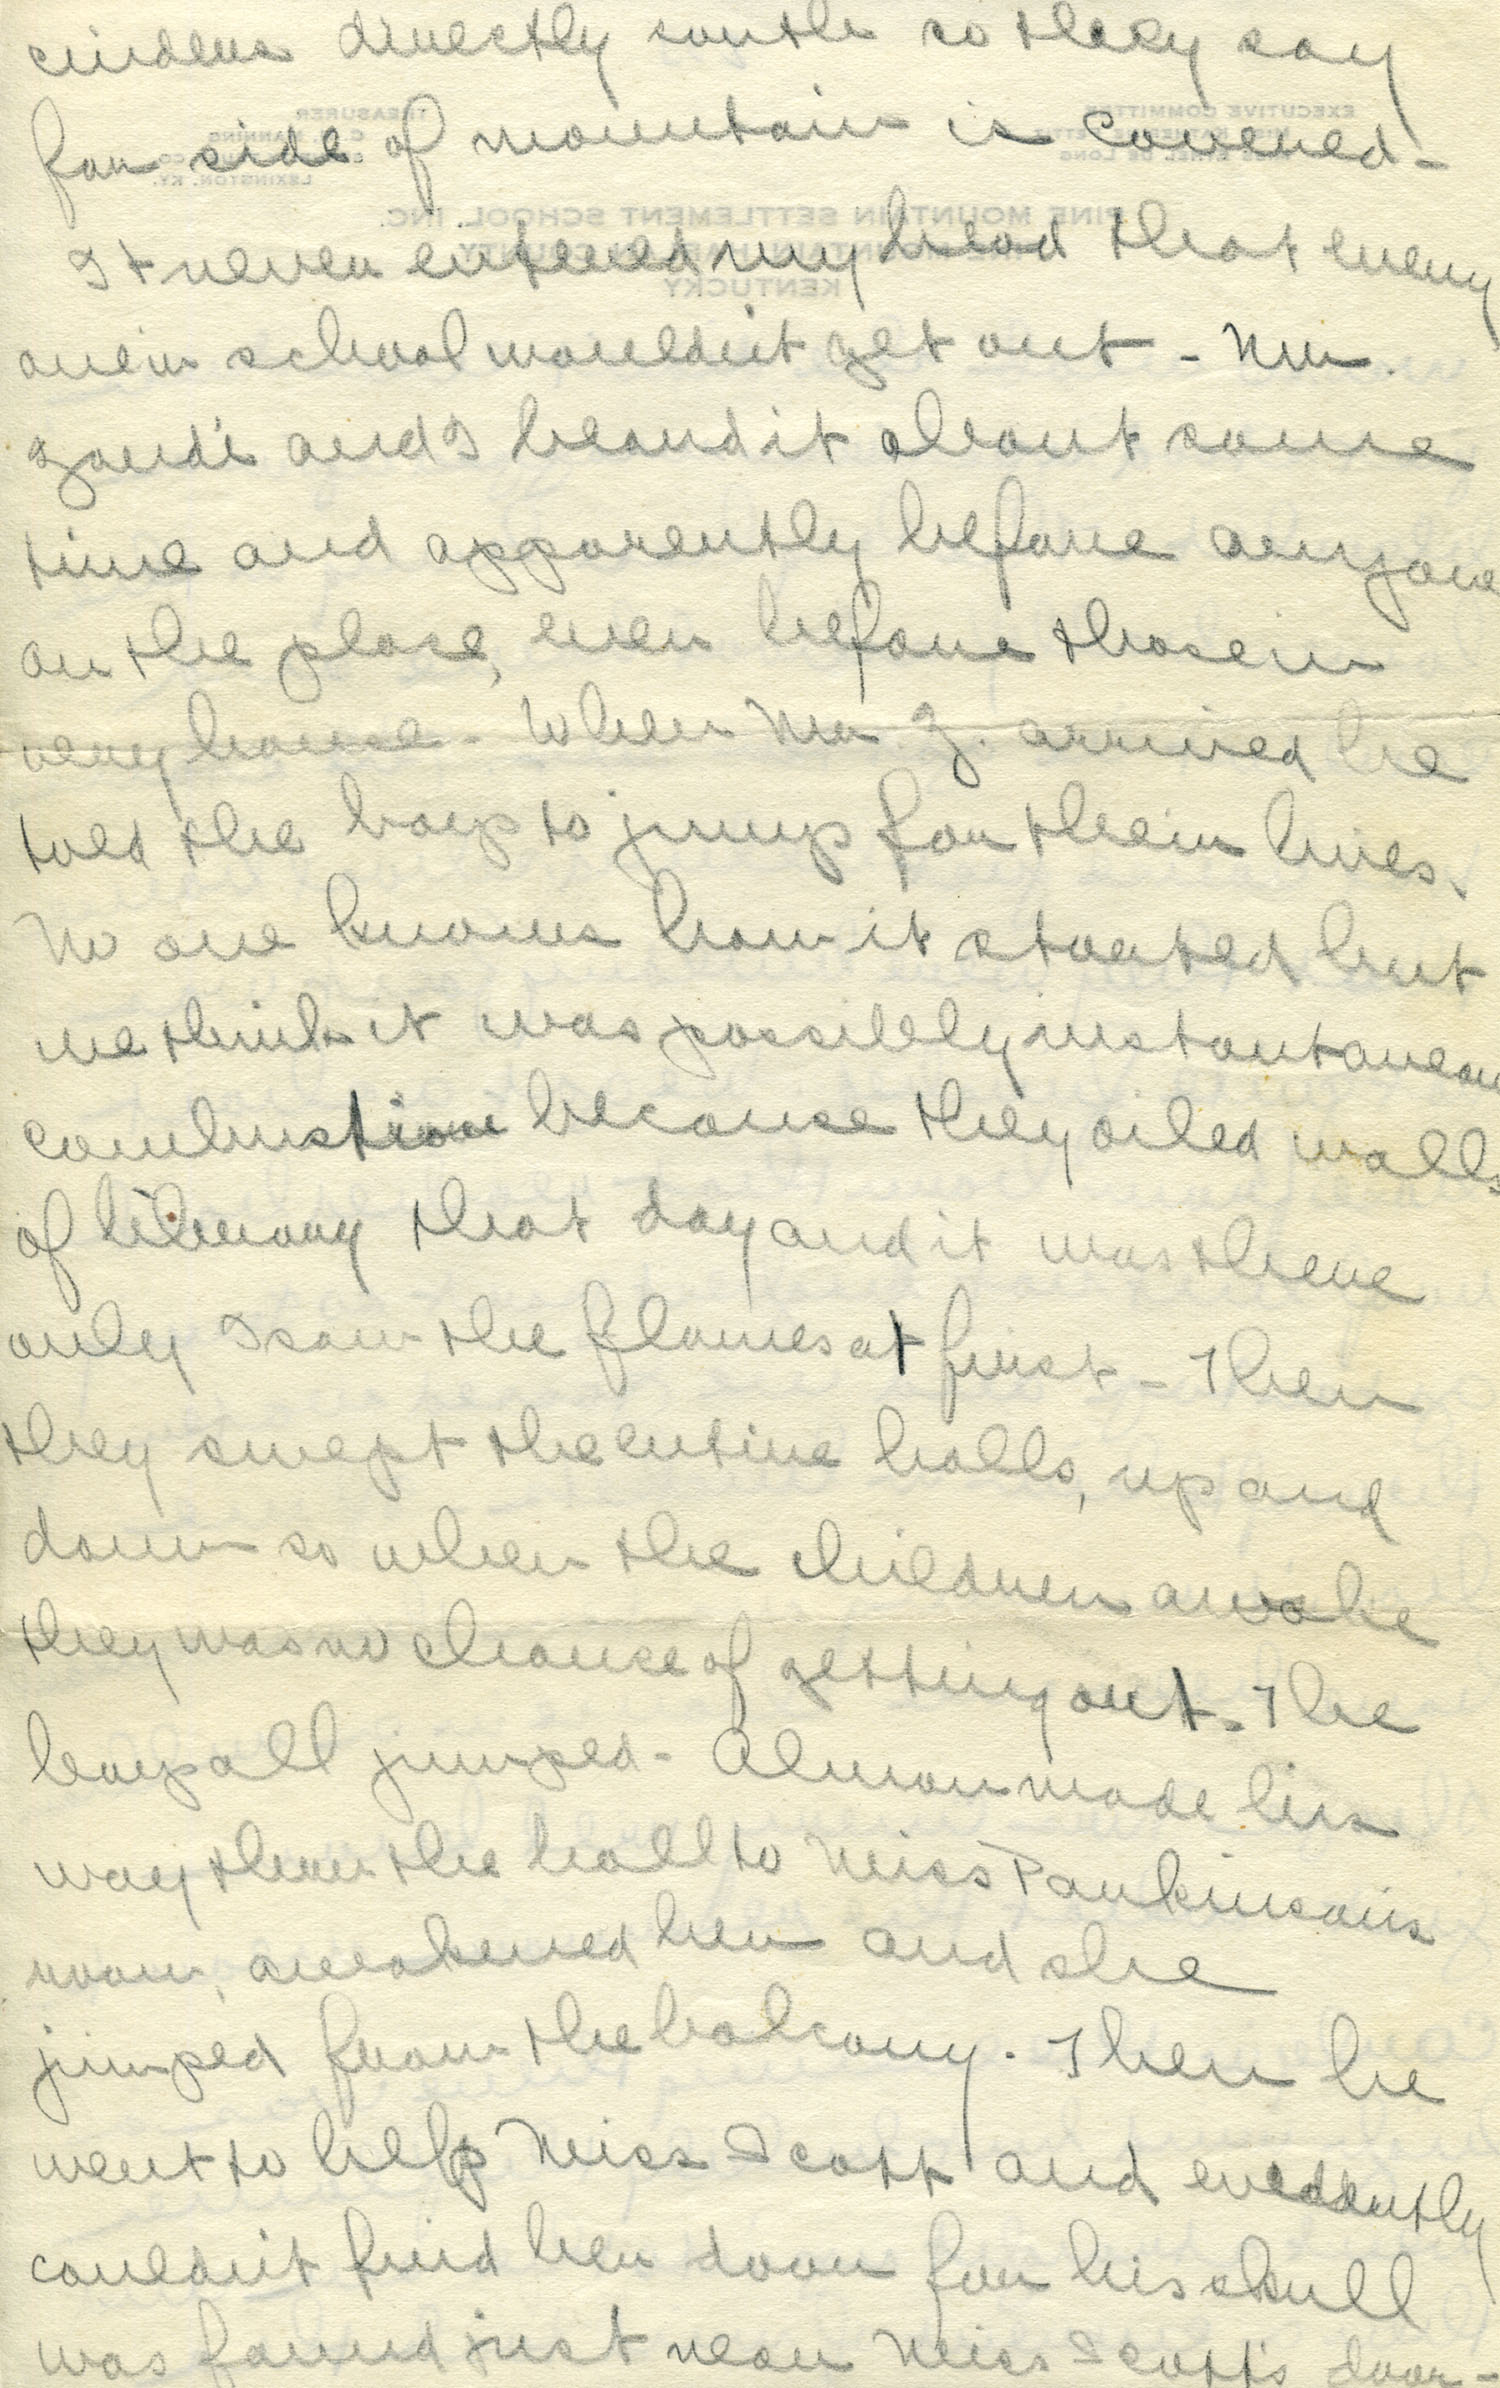 cinders directly south so they say
far side of mountain is covered -
It never entered my head that every
one in school wouldn't get out - Mr.
Zande and I heard it about same
time and apparently before anyone
on the place, even before those in
very house. When Mr Z. arrived he
told the boys to jump for their lives.
No one knows how it started but
we think it was possibly instantaneous
combustion because they oiled walls
of library that day and it was there
only I saw the flames at first - Then
they swept the entire halls, up and
down so when the children awoke
they was no chance of getting out. The
boys all jumped - Almon made his
way thru the hall to Miss Parkinson's
room, awakened her and she
jumped from the balcony. Then he
went to help Miss Scott and evidently
couldn't find her door for his skull
was found just near Miss Scott's door -
EXECUTIVE COMMITTEE
TREASURER
LEXINGTON, KY.
PINE MOUNTAIN SETTLEMENT SCHOOL, INC.
KENTUCKY